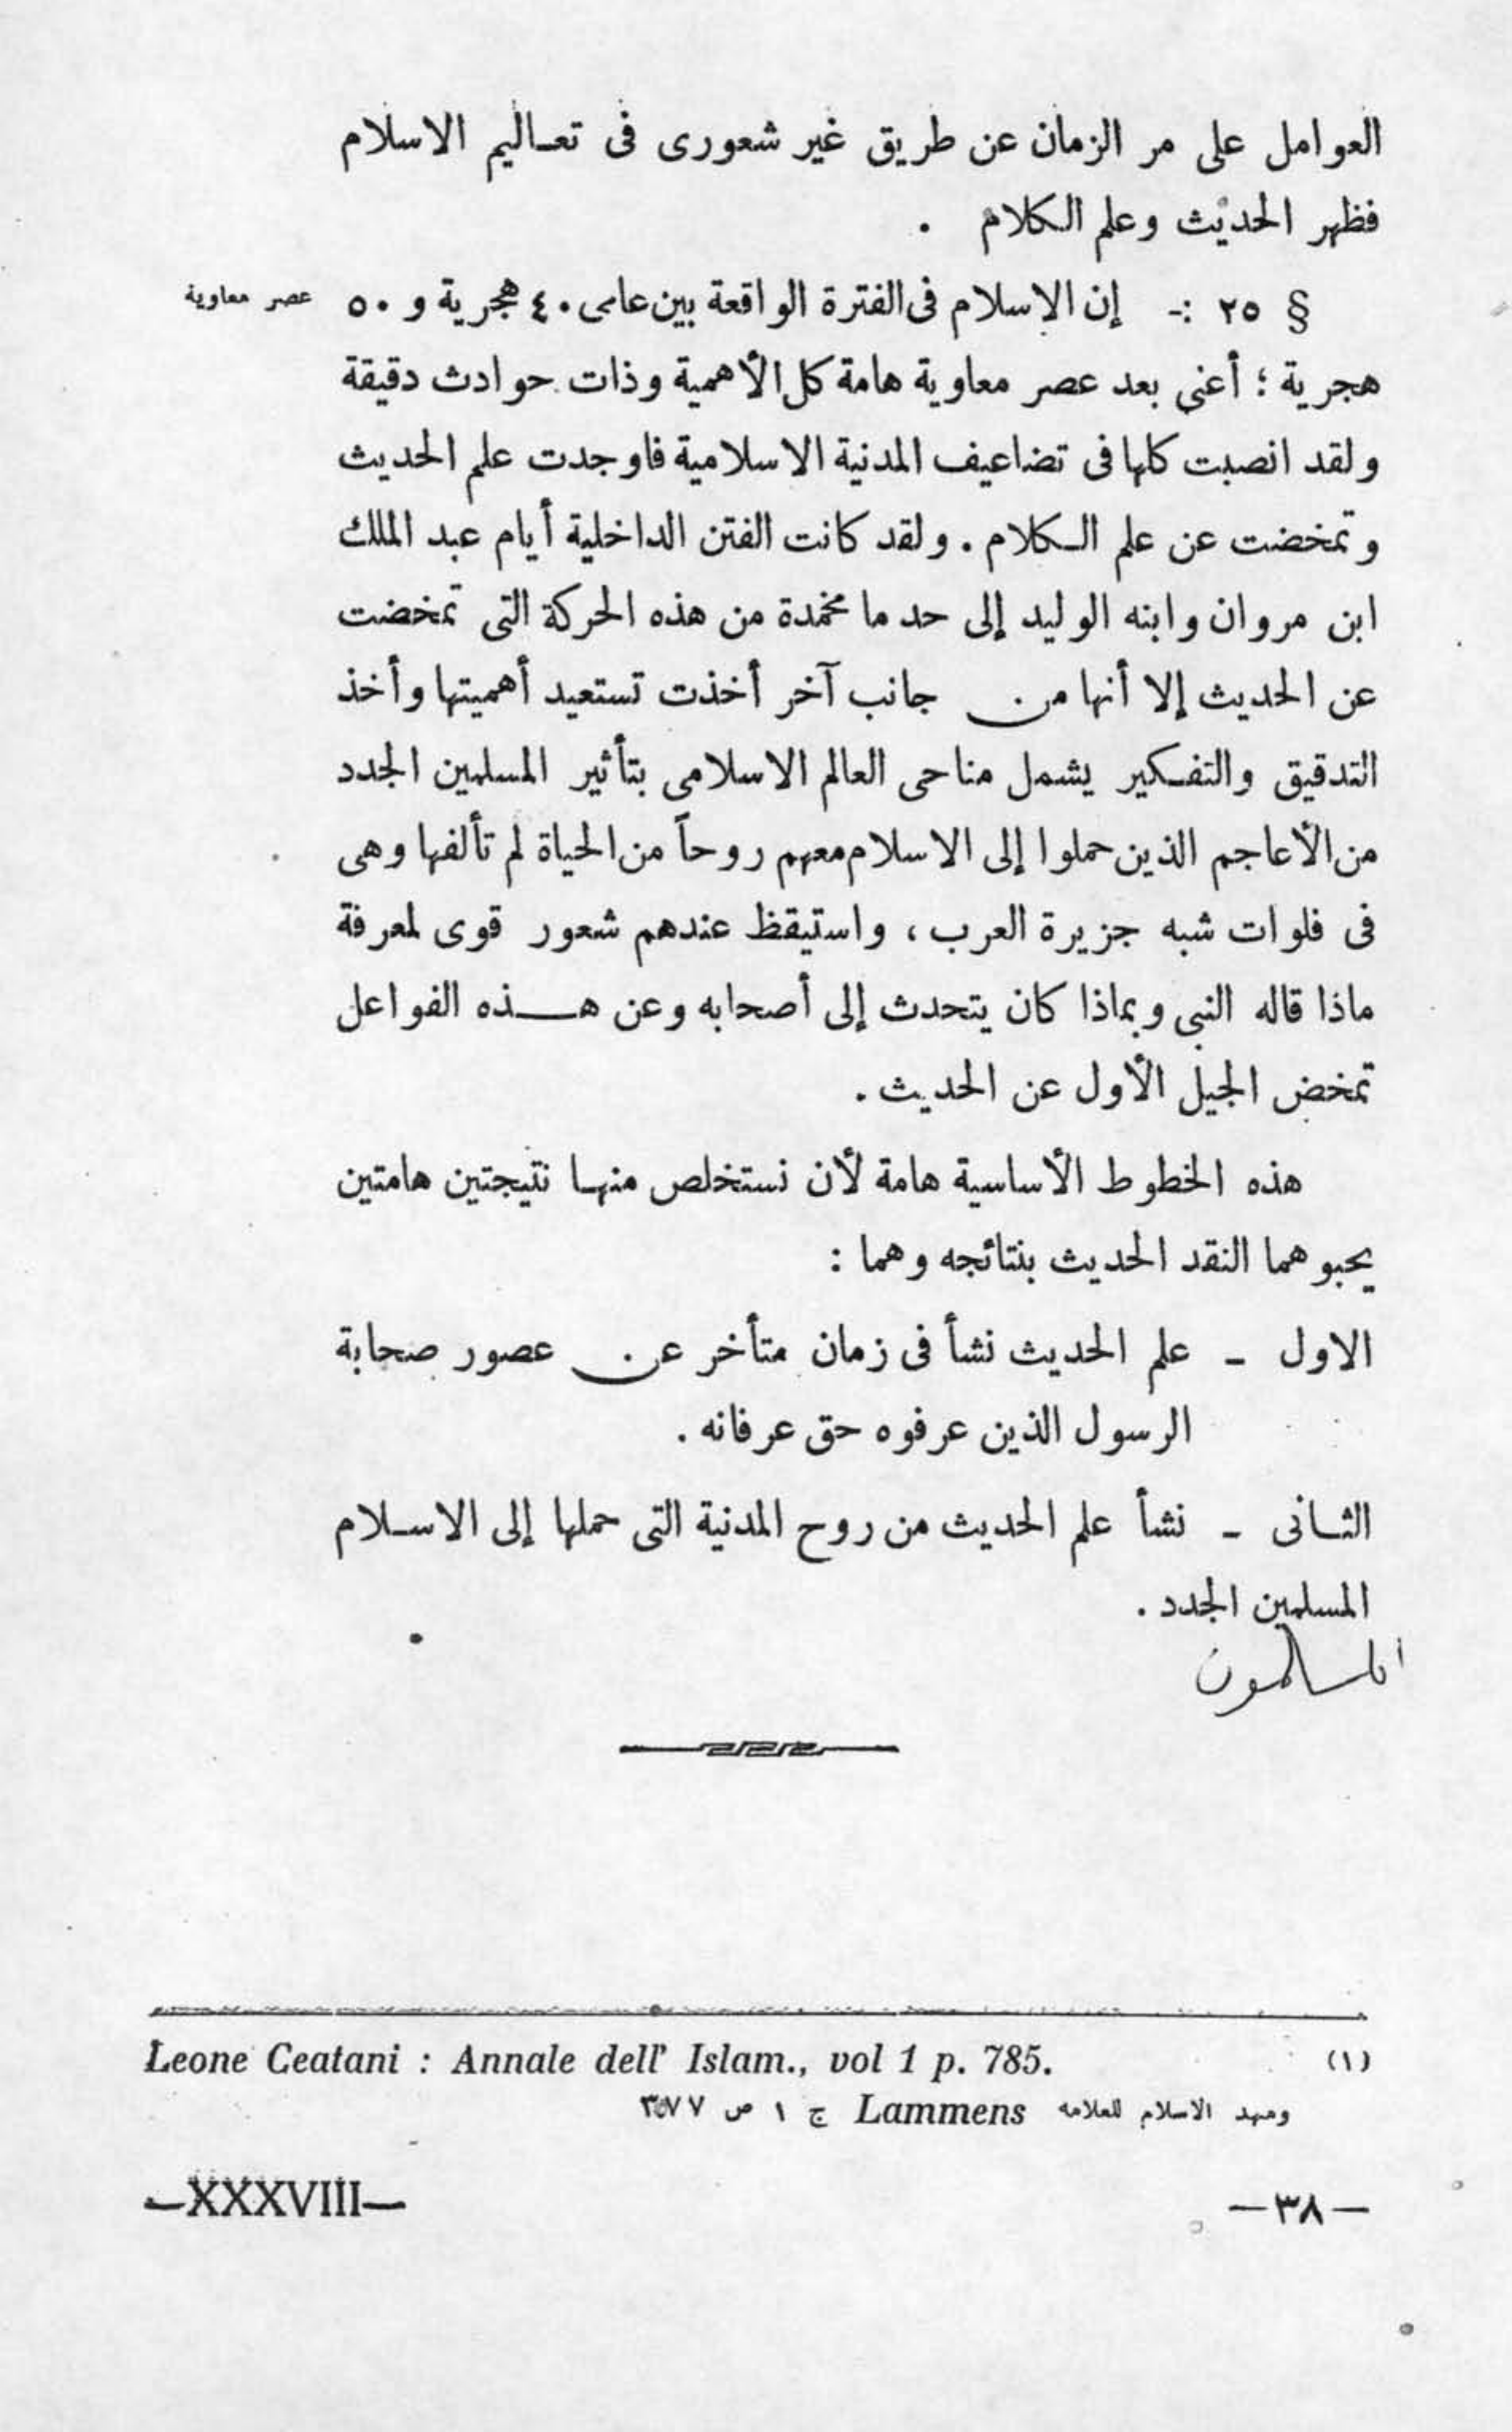 العوامل على مر الزمان عن طريق غير شعورى فى تعـاليم الاسلام
فظهر الحديث وعلم الكلام .
§ ٢٥ :- إن الاسلام فى الفترة الواقعة بين عامى ٤٠ هجرية و ٥٠
عصر معاوية
هجرية ؛ أعنى بعد عصر معاوية هامة كل الأهمية وذات حوادث دقيقة
ولقد انصبت كلها فى تضاعيف المدنية الاسلامية فاوجدت علم الحديث
وتمخضت عن علم الـكلام . ولقد كانت الفتن الداخلية أيام عبد الملك
ابن مروان وابنه الوليد إلى حد ما مخمدة من هذه الحركة التى تمخضت
عن الحديث إلا أنها من جانب آخر أخذت تستعيد أهميتها وأخذ
التدقيق والتفـكير يشمل مناحى العالم الاسلامى بتأثير المسلمين الجدد
من الأعاجم الذين حملوا إلى الاسلام معهم روحاً من الحياة لم تألفها وهى
فى فلوات شبه جزيرة العرب ، واستيقظ عندهم شعور قوى لمعرفة
ماذا قاله النبى وبماذا كان يتحدث إلى أصحابه وعن هـــذه الفواعل
تمخض الجيل الأول عن الحديث .
هذه الخطوط الأساسية هامة لأن نستخلص منهـا نتيجتين هامتين
يحبوهما النقد الحديث بنتائجه وهما :
الاول - علم الحديث نشأ فى زمان متأخر عن عصور صحابة
الرسول الذين عرفوه حق عرفانه .
الثـانى - نشأ علم الحديث من روح المدنية التى حملها إلى الاسـلام
المسلمين الجدد .
المسالمون
(١) Leone Ceatani : Annale dell' Islam., vol 1 p. 785.
ومهد الاسلام للعلامه Lammens ج ١ ص
—XXXVIII— —٣٨—